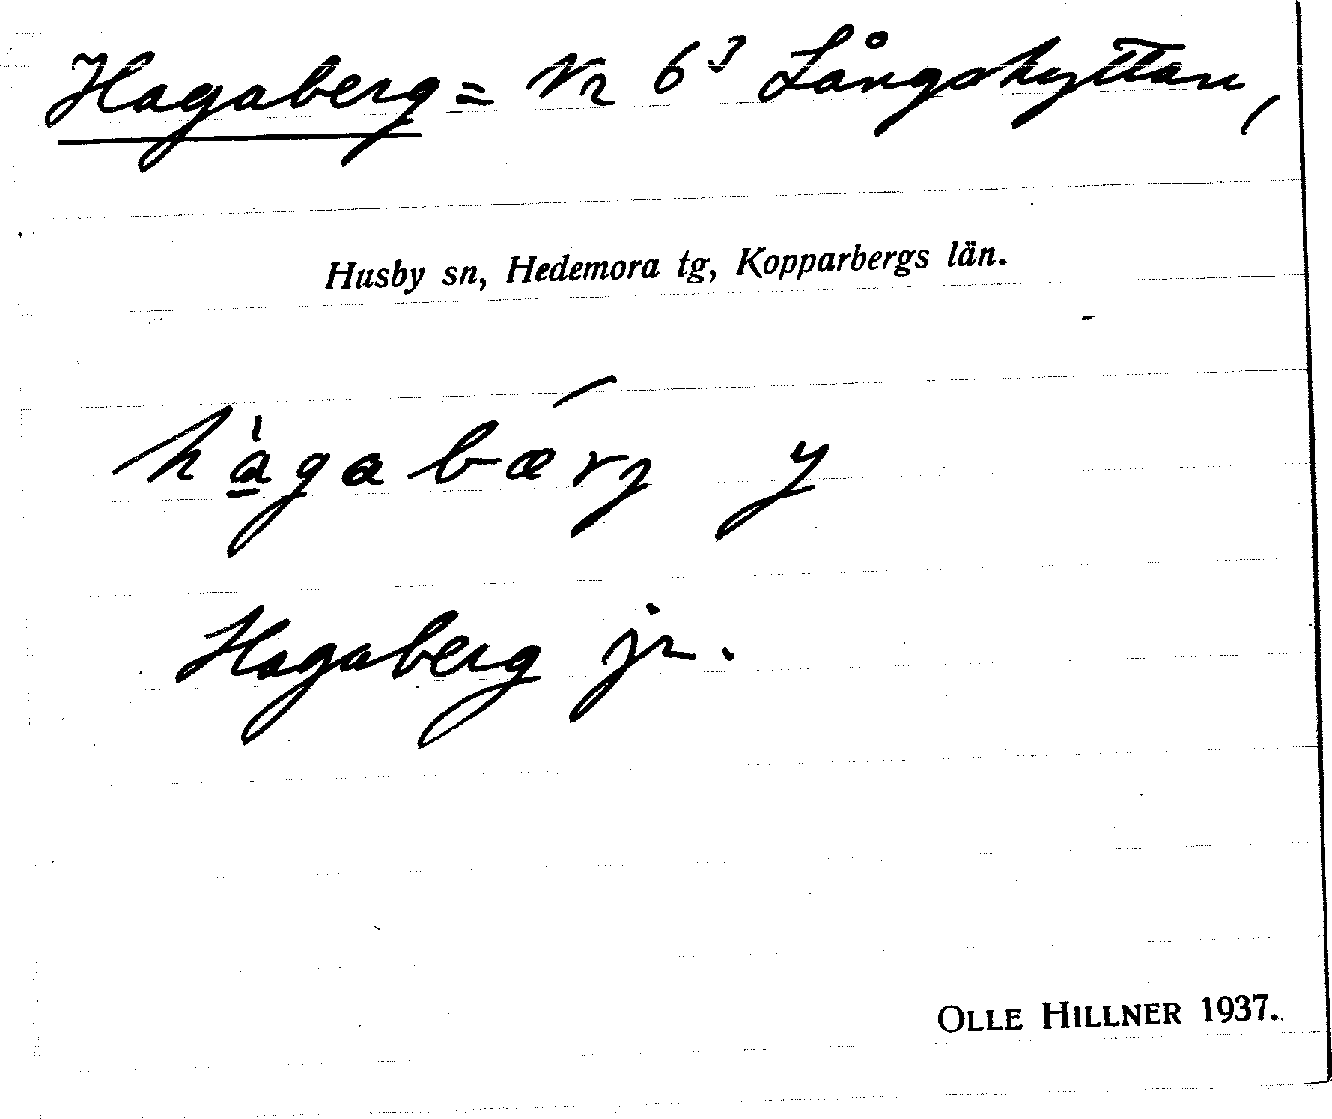 Hagaberg = Nr 6³ Långshyttan,
Husby sn, Hedemora tg, Kopparbergs län.
hàgabærg y
Hagaberg jr.
OLLE HILLNER 1937.